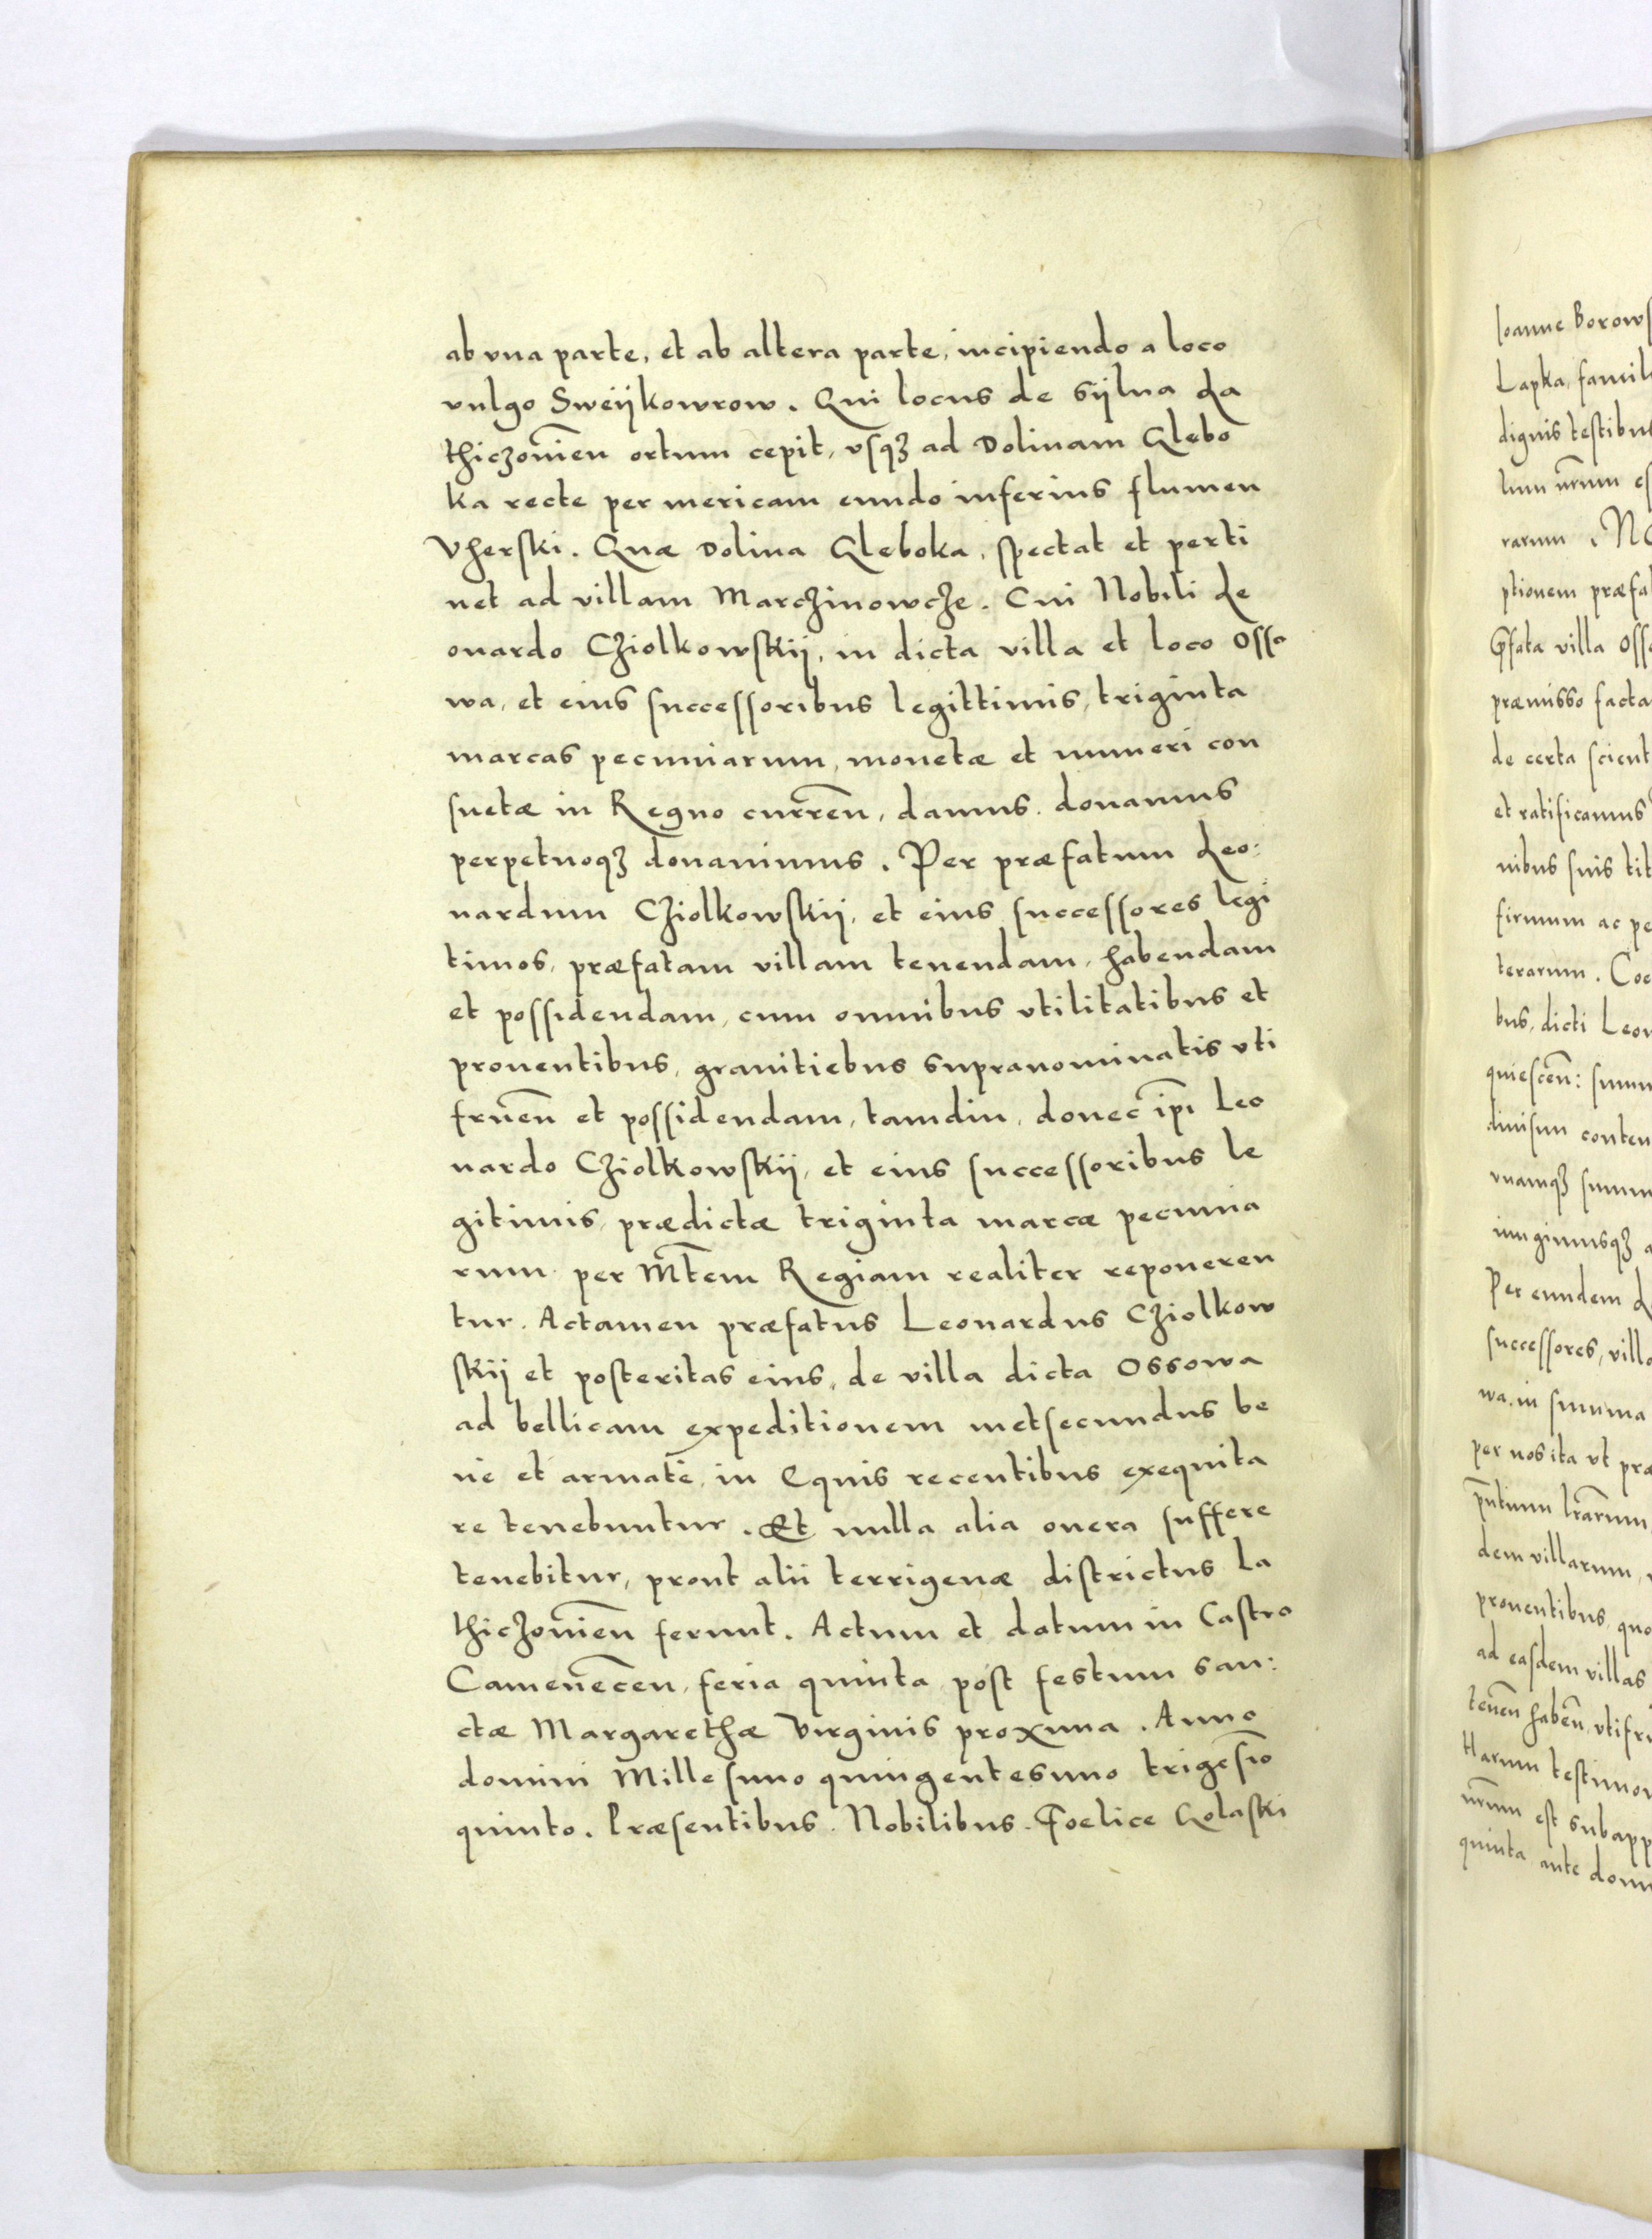 ab vna parte, et ab altera parte, incipiendo a loco
vulgo Sweÿkowrow. Qui locus de sÿlua La
thiczouien̄ ortum cepit, vsqȝ ad Dolinam Glebo
ka recte per mericam eundo inferius flumen
Vherski. Quæ Dolina Gleboka, spectat et perti
net ad villam Marczinowcze. Cui Nobili Le
onardo Cziolkowskÿ, in dicta villa et loco Osso
wa, et eius successoribus legittimis, triginta
marcas pecuniarum, monetæ et numeri con
suetæ in Regno curren̄, damus. donamus
perpetuoqȝ donauimus. Per præfatum Leo:
nardum Cziolkowskÿ, et eius successores legi
timos, præfatam villam tenendam, habendam
et possidendam, cum omnibus vtilitatibus et
prouentibus, granitiebus supranominatis vti
fruen̄ et possidendam, tamdiu, donec ip̄i Leo
nardo Cziolkowskÿ, et eius successoribus le
gitimis, prædictæ triginta marcæ pecunia
rum per Mt̄em Regiam realiter reponeren
tur. Actamen præfatus Leonardus Cziolkow
skÿ et posteritas eius, de villa dicta Ossowa
ad bellicam expeditionem metsecundus be
ne et armate, in Equis recentibus exequita
re tenebuntur. Et nulla alia onera suffere
tenebitur, prout alii terrigenæ districtus La
thiczouien̄ ferunt. Actum et datum in Castro
Camenecen̄, feria quinta post festum san:
ctæ Margarethæ Virginis proxima. Anno
domini Millesimo quingentesimo trigesi̅o
quinto. Præsentibus. Nobilibus. Foelice Golaski
Ioanne Borows
Lapka, famil
dignis testibu
lum nr̄um es
rarum. No
ptionem præfa
P̄fata villa Oss
præmisso facta
de certa scient
et ratificamus
nibus suis tit
firmum ac pe
terarum. Coe
bus, dicti Leon
quiescen̄: summ
conten
vnamqȝ summ
Per eundem L
successores, villa
wa. in summa
per nos ita vt præ
p̄ntium lr̄arum
dem villarum,
prouentibus quo
ad easdem villas
tenen̄ haben̄, vtifru
Harum testimon
nr̄um est subapp
quinta ante dom